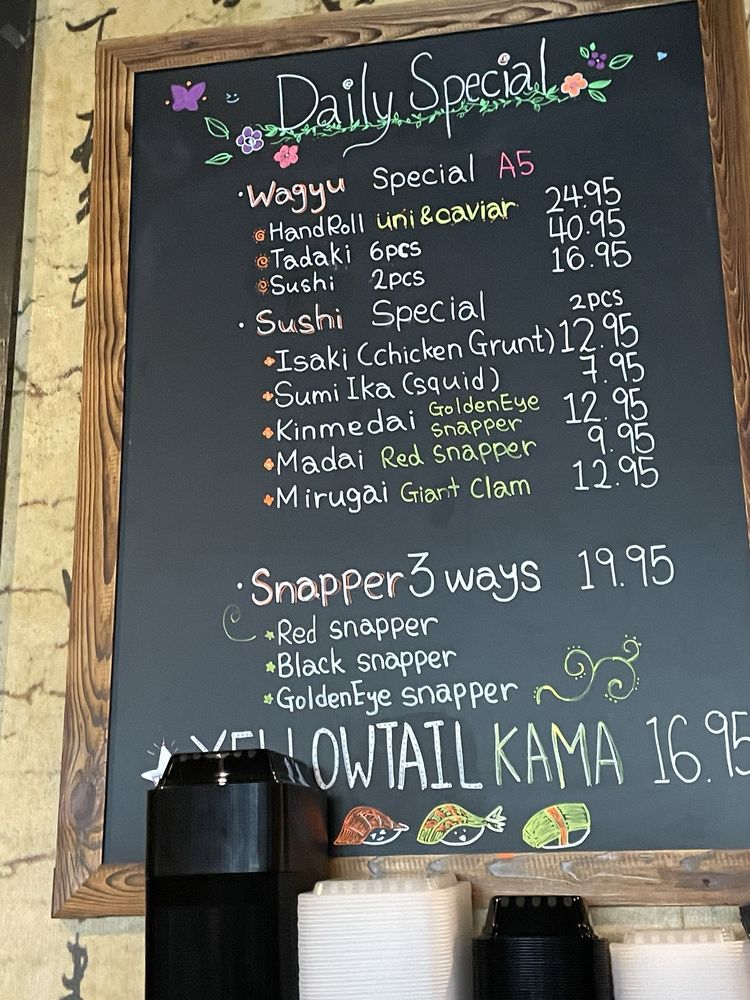 Daily Special
·Wagyu Special A5
HandRoll uni & caviar 24.95
Tadaki 6pcs 40.95
Sushi 2pcs 16.95
·Sushi Special 2pcs
Isaki (chicken Grunt) 12.95
Sumi Ika (squid) 7.95
Kinmedai GoldenEye snapper 12.95
Madai Red Snapper 9.95
Mirugai Giant Clam 12.95
·Snapper 3 ways 19.95
Red snapper
Black snapper
GoldenEye snapper
YELLOWTAIL KAMA 16.95